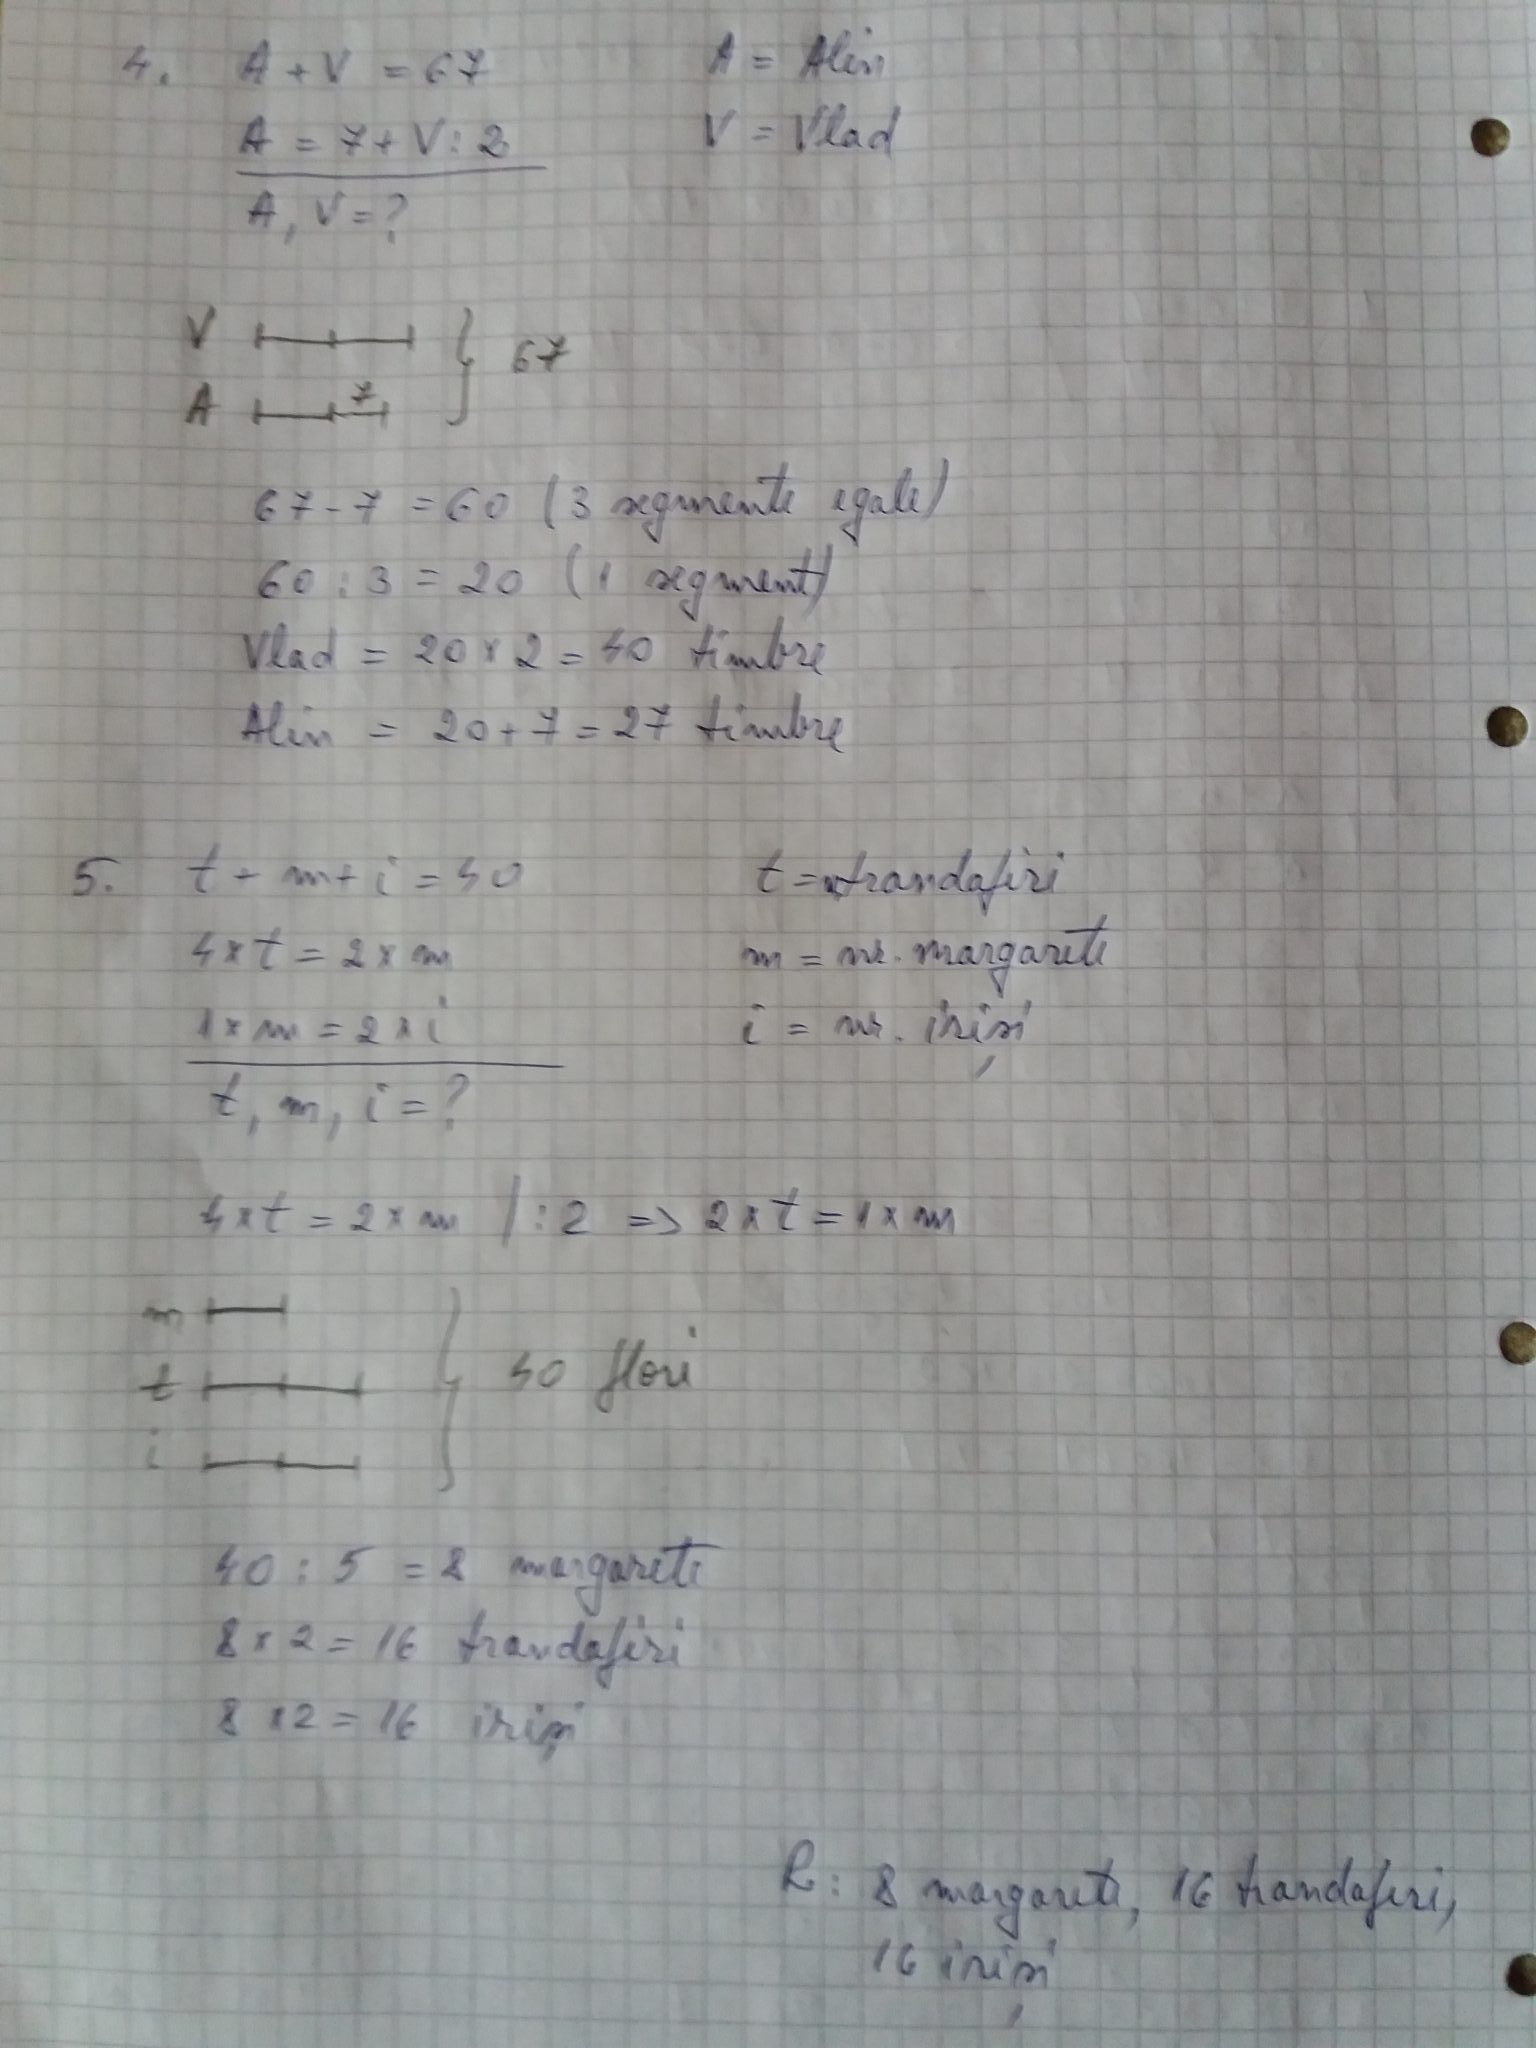 4. A + V = 67 A = Alin
A = 7 + V : 2 V = Vlad
A, V = ?
V 67
A 7
67 - 7 = 60 (3 segmente egale)
60 : 3 = 20 (1 segment)
Vlad = 20 × 2 = 40 timbre
Alin = 20 + 7 = 27 timbre
5. t + m + i = 40 t = trandafiri
4 × t = 2 × m m = nr. margarete
1 × m = 2 × i i = nr. iriși
t, m, i = ?
4 × t = 2 × m | : 2 => 2 × t = 1 × m
m
t 40 flori
i
40 : 5 = 8 margarete
8 × 2 = 16 trandafiri
8 × 2 = 16 iriși
R: 8 margarete, 16 trandafiri,
16 iriși